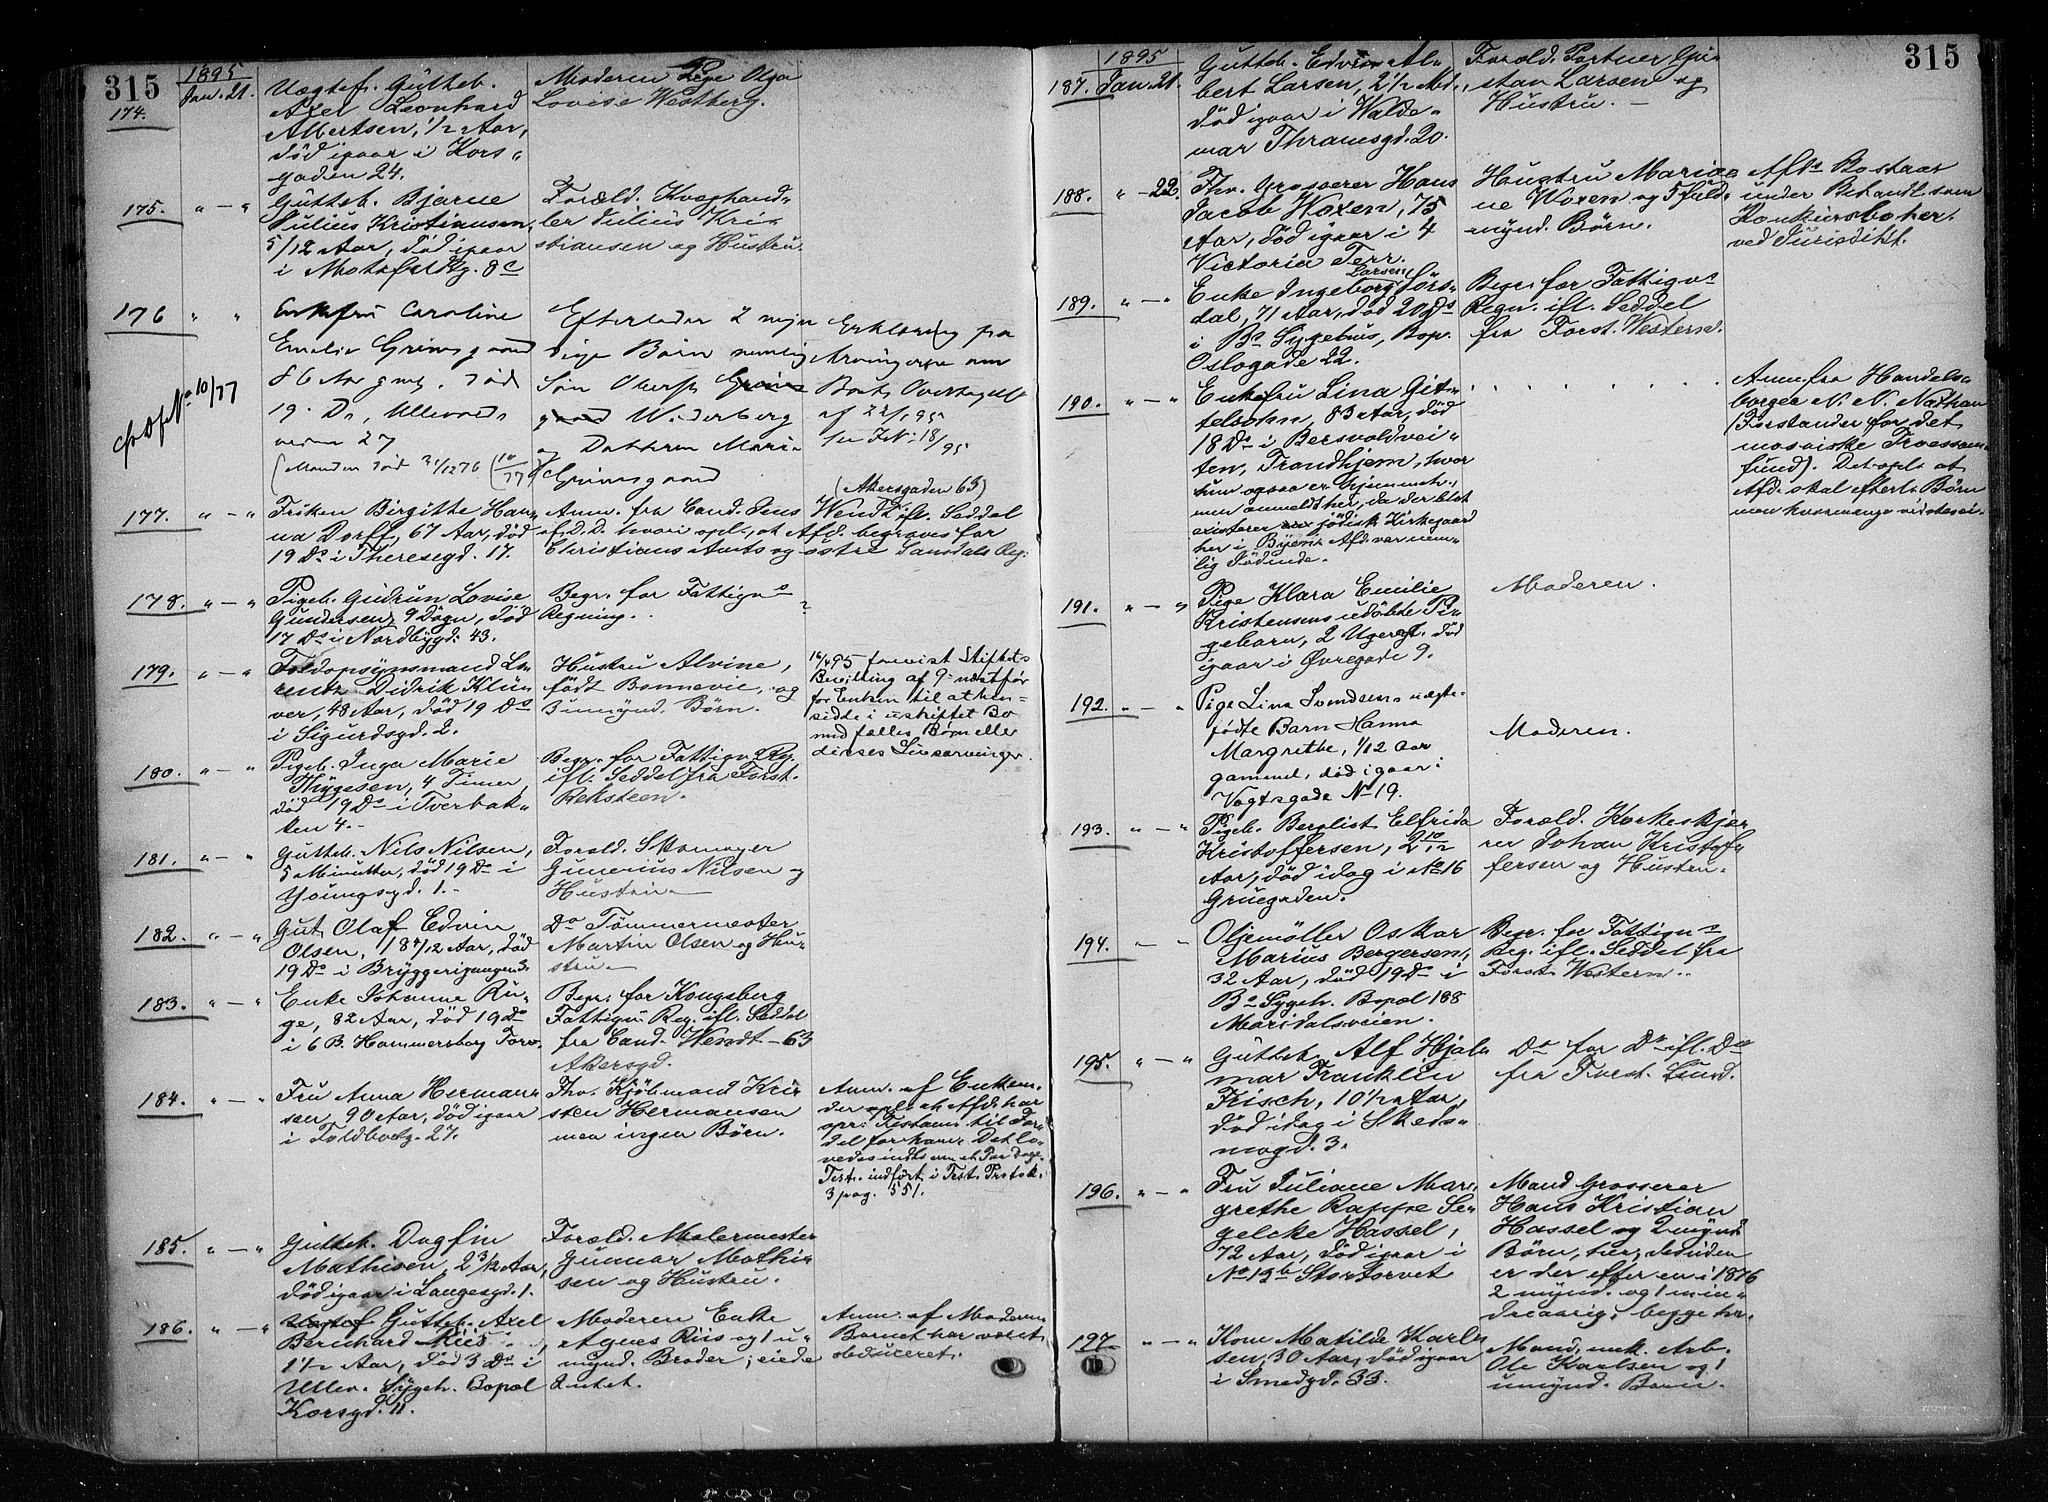 315
1895
174.
Jan. 21.
Uægtef. Gutteb.
Axel Leonhard
Albertsen, 1/2 Aar,
død igaar i Kors-
gaden 24.
Moderen Pige Olga
Lovise Westberg.
175. " — "
Gutteb. Bjarne
Julius Kristiansen,
5/12 Aar, død igaar
i Motzfeldtg. 8c
Foræld. Kvæghand-
ler Julius Kri-
stiansen og Hustru.
176 " "
Enkefru Caroline
Emelie Grimsgaard
86 Aar gml. død
19. Ds, Ullevolds
veien 27
(Manden død 21/12 76 (10/77)
No 10/77
Efterlader 2 myn
dige Børn nemlig
Søn Oberst Grims
gaard Wiederberg
og Datteren Marie
Grimsgaard
Erklæring fra
Arvingerne om
Boets Overtagelse
af 22/1 95
se J.N: 18/95
177. " — "
Frøken Birgitte Han-
na Dorff, 67 Aar, død
19 Ds i Theresegd. 17.
Anm. fra Cand. Jens Wendt ifl. Seddel
af d. D. hvori opl., at Afd. begraves for
Christians Amts og østre Landdels Reg.
(Akersgaden 63)
178. " — "
Pigeb. Gudrun Lovise
Gundersen, 9 Døgn, død
17 Ds i Nordbygd. 43.
Begr. for Fattigvs
Regning.
?
179. " — "
Toldopsynsmand Lo-
rentz Didrik Klü-
ver, 48 Aar, død 19 Ds
i Sigurdsgd. 2.
Hustru Alvine,
født Bonnevie, og
3 umynd. Børn.
16/4 95 forevist Stiftets
Bevilling af 9. næstfør
for Enken til at hen-
sidde i uskiftet Bo
med fælles Børn eller
disses Livsarvinger.
180. " — "
Pigeb. Inga Marie
Thygesen, 4 Timer,
død 19 Ds i Tverbak-
ken 4.-
Begr. for Fattigv. Reg.
ifl. Seddel fra Forst.
Reksteen.
181. " — "
Gutteb. Nils Nilsen,
5 Minutter, død 19 Ds i
Youngsgd. 1.-
Foræld. Skomager
Gunerius Nilsen og
Hustru.-
182. " — "
Gut Olaf Edvin
Olsen, 18 4/12 Aar, død
19 Ds i Bryggerigangen 3.
Do Tømmermester
Martin Olsen og Hu-
stru.-
183. " — "
Enke Johanne Ru-
ge, 82 Aar, død 19 Ds
i 6 B. Hammersborg Torv.
Begr. for Kongsberg
Fattigv. Reg. ifl. Seddel
fra Cand. Wendt — 63
Akersgd.
184. " — "
Fru Anna Herman-
sen, 90 Aar, død igaar
i Toldbodg. 27.
Fhv. Kjøbmand Kri-
sten Hermansen
men ingen Børn.
Anm. af Enkem.
der opl. at Afd. har
opr. Testam. til For-
del for ham. Det lo-
vedes indlv. om et Par Dage.
Test. indført i Test. Protok.
3 pag. 551.
185. " — "
Gutteb. Dagfin
Mathisen, 2 3/12 Aar,
død igaar i Langesgd. 1.
Foræld. Malermester
Gunnar Mathi-
sen og Hustru.
186. " — "
Uægtef Gutteb. Axel
Bernhard Riis
1 1/2 Aar, død 3 Ds i
Ullev. Sygeh. Bopæl
Korsgd. 11.
Moderen Enke
Agnes Riis og 1 u-
mynd. Broder; eiede
Intet.
Anm. af Moderen
Barnet har været
obduceret.
1895
315
187. Jan. 21.
Gutteb. Edvin Al-
bert Larsen, 2 1/2 Md.,
død igaar i Walde-
mar Thranesgd. 20.
Foræld. Portner Gu-
stav Larsen og
Hustru. —
188. " — 22.
Fhv. Grosserer Hans
Jacob Woxen, 75
Aar, død igaar i 4
Victoria Terr.
Hustru Maria-
ne Woxen og 5 fuld-
mynd. Børn.
Afds Bo staar
under Behandl. som
Konkursbo her
ved Jurisdikt.
189. " — "
Enke Ingeborg Larsen Førs-
dal, 71 Aar, død 20 Ds
i Bs Sygehus, Bop.
Oslogade 22.
Begr. for Fattigvs
Regn. ifl. Seddel
fra Forst. Western.
190. " — "
Enkefru Lina Git-
telsohn, 83 Aar, død
18 Ds i Bersvoldvei-
ten, Trondhjem, hvor
hun ogsaa er hjemmeh.,
men anmeldt her, da der blot
existerer jødisk Kirkegaard
her i Byen. Afd. var nem-
lig Jødinde.
Anm. fra Handels-
borger N. N. Nathan
(Forstander for det
mosaiske Troessam-
fund). Det opl. at
Afd. skal efterl. Børn
men hvormange vidstes ei.
191. " — "
Pige Klara Emilie
Kristensens udøbte Pi-
gebarn, 2 Uger gl. død
igaar i Øvregade 9.
Moderen.
192. " — "
Pige Lina Svendsens uægte-
fødte Barn Hanna
Margrethe, 1/12 Aar
gammel, død igaar i
Vogtsgade No 19.
Moderen.
193. " — "
Pigeb. Bergliot Elfrida
Kristoffersen, 2 10/12
Aar, død idag i No 16
Gruegaden.
Foræld. Korkeskjæ-
rer Johan Kristof-
fersen og Hustru.
194. " — "
Oljemøller Oskar
Marius Bergersen,
32 Aar, død 19 Ds i
Bs Sygeh. Bopæl 188
Maridalsveien.
Begr. for Fattigvs
Reg. ifl. Seddel fra
Forst. Western.
195. " — "
Gutteb. Alf Hjal-
mar Franklin
Frisch, 10 1/2 Aar,
død idag i Skeds-
mogd. 3.
Do for Do ifl. Do
fra Forst. Lund.
196. " — "
Fru Juliane Mar-
grethe Rappe Se-
gelcke Hassel,
72 Aar, død igaar i
No 13b Stortorvet
Mand Grosserer
Hans Kristian
Hassel og 2 mynd.
Børn, her, desuden
er der efter en i 1876
2 mynd. og 1 min-
dreaarig, begge her.
197. " — "
Kone Matilde Karl-
sen, 30 Aar, død igaar
i Smedgd. 33.
Mand, mek. Arb.
Ole Karlsen og 1
umynd. Barn.